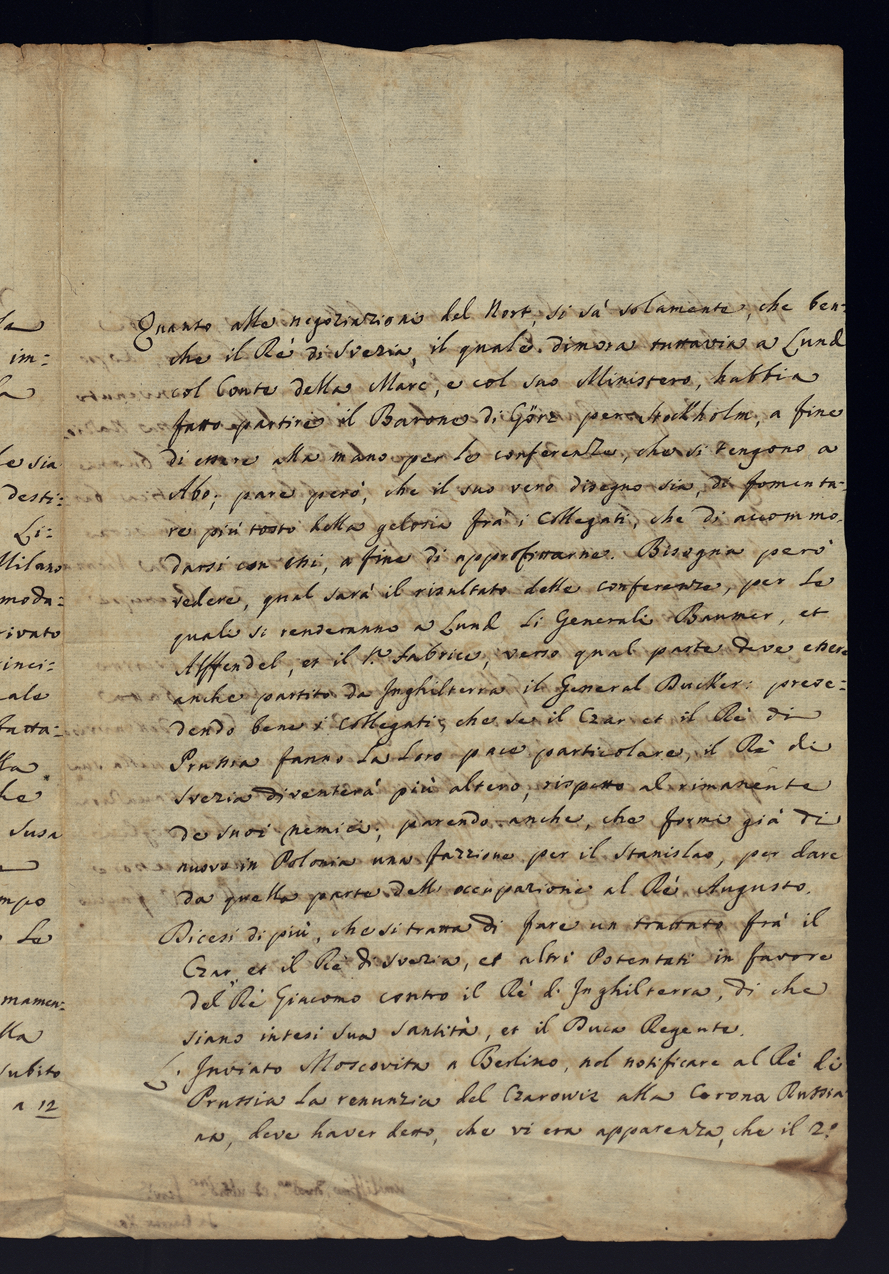 la
im=
la
le sia
desti=
Li=
Milano
moda=
rivato
inci=
ale
fatta=
lla
he
Susa
mpo
Le
mamen=
lla
subito
a 12
Quanto alle negoziazioni del Nort, si sà solamente, che ben=
che il Rè di Svezia, il quale dimora tuttavia a Lund
col Conte della Marc, e col suo Ministero, habbia
fatto partire il Barone di Görz per Stockholm, a fine
di essere alla mano per le conferenze, che si tengono a
Abo; pare però, che il suo vero disegno sia, di fomenta=
re più tosto della gelosia frà i Collegati, che di accommo=
darsi con essi, a fine di approfittarne. Bisogna però
vedere, qual sarà il risultato delle conferenze, per le
quali si renderanno a Lund li Generali Baumer, et
Alffendel, et il Sr. Fabrice, verso qual parte deve essere
anche partito da Inghilterra il General Ducker: preve=
dendo bene i Collegati, che se il Czar et il Rè di
Prussia fanno la loro pace particolare, il Rè di
Svezia diventerà più altero, rispetto al rimanente
de suoi nemici; parendo anche, che formi già di
nuovo in Polonia una fazzione per il Stanislao, per dare
da quella parte dell' occupazione al Rè Augusto.
Dicesi di più, che si tratta di fare un trattato frà il
Czar et il Rè di Svezia, et altri Potentati in favore
del Rè Giacomo contro il Rè d' Inghilterra, di che
siano intesi Sua Santità, et il Duca Regente.
L' Inviato Moscovita a Berlino, nel notificare al Rè di
Prussia la renunzia del Czarowiz alla Corona Russia=
na, deve haver detto, che vi era apparenza, che il 2.º